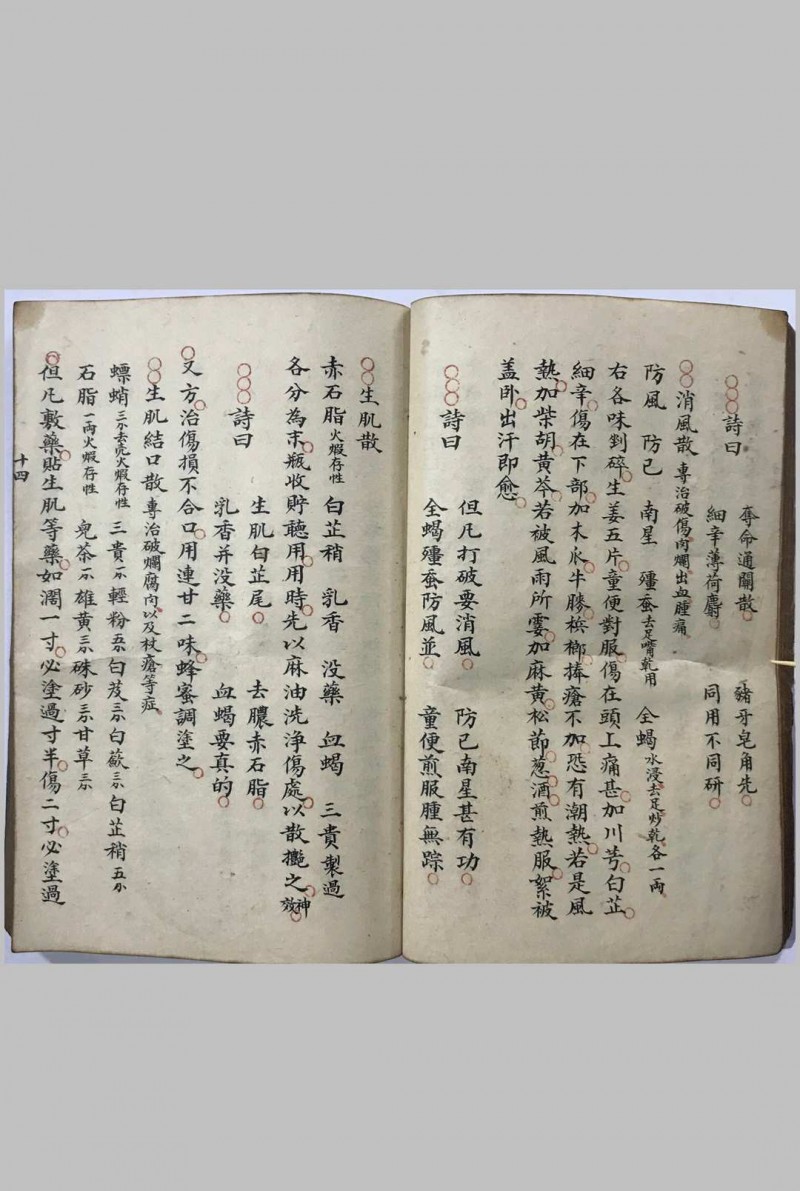 詩曰
奪命通關散 豬牙皂角先
細辛薄荷麝 同用不同研
消風散 專治破傷肉爛出血腫痛
防風 防己 南星 殭蚕去足嘴乾用 全蝎水浸去足炒乾各一両
右各味剉碎生姜五片童便對服傷在頭上痛甚加川芎白芷
細辛傷在下部加木瓜牛膝梹榔捧瘡不加恐有潮熱若是風
熱加柴胡黄芩若被風雨所霎加麻黄松節葱酒煎熱服絮被
盖卧出汗即愈
詩曰
但凡打破要消風 防己南星甚有功
全蝎殭蚕防風並 童便煎服腫無踪
生肌散
赤石脂火煅存性 白芷稍 乳香 没藥 血蝎 三貴製過
各分為末瓶收貯聽用用時先以麻油洗浄傷處以散攙之神效
詩曰
生肌白芷尾 去膿赤石脂
乳香并没藥 血蝎要真的
又方治傷損不合口用連甘二味蜂蜜調塗之
生肌結口散 專治破爛腐肉以及杖瘡等症
螵蛸三分去壳火煅存性 三貴一分 輕粉五分 白芨三分 白蘞三分 白芷稍五分
石脂一両火煅存性 児茶一分 雄黄三分 硃砂三分 甘草三分
但凡敷藥貼生肌等藥如濶一寸必塗過寸半傷二寸必塗過
十四